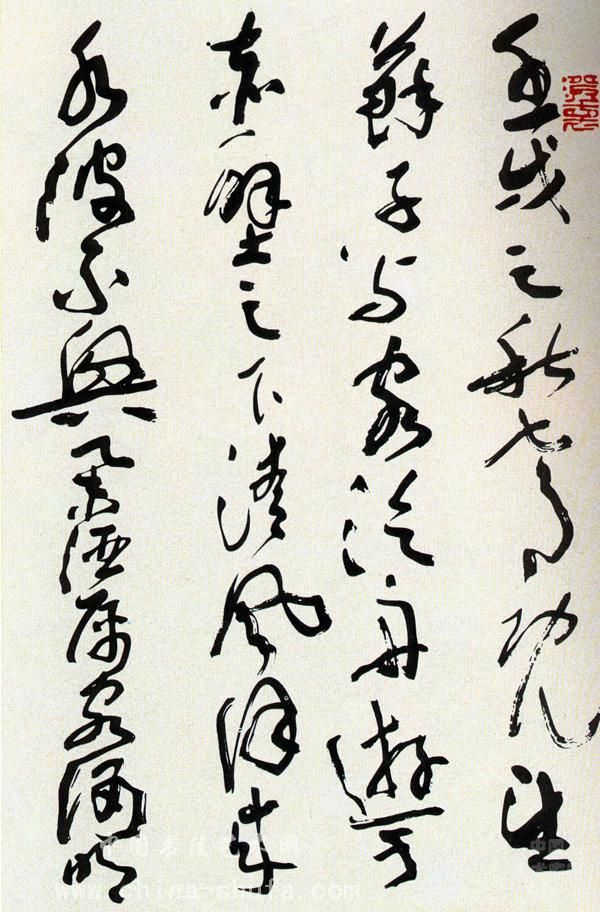 壬戌之秋七月既望
蘇子与客泛舟遊于
赤壁之下清風徐來
水波不興舉酒属客誦明
www.china-shufa.com